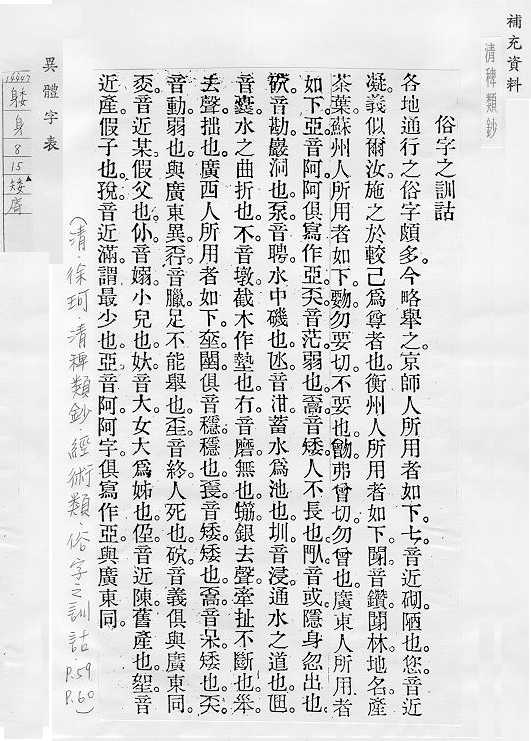 補充資料
清稗類鈔
俗字之訓詁
各地通行之俗字頗多。今略舉之。京師人所用者如下。音近砌。陋也。您。音近
凝。義似爾汝。施之於較己爲尊者也。衡州人所用者如下。音鑽。林。地名。產
茶葉。蘇州人所用者如下。覅。勿要切。不要也。朆。弗曾切。勿曾也。廣東人所用者
如下。亞音阿。阿俱寫作亞。奀音茫。弱也。音矮。人不長也。閄音或。隱身忽出也。
音勘。巖洞也。泵音聘。水中磯也。氹音泔。蓄水爲池也。圳音浸。通水之道也。
音。水之曲折也。不音墩。截木作墊也。冇音磨。無也。銀去聲。牽扯不斷也。
去聲。拙也。廣西人所用者如下。閪俱音穩。穩也。音矮。矮也。音呆。矮也。奀
音動。弱也。與廣東異。音臘。足不能舉也。音終。人死也。音義俱與廣東同。
音近某。假父也。音嫋。小兒也。音大。女大爲姊也。音近陳。舊產也。音
近產。假子也。音近滿。謂最少也。亞音阿。阿字俱寫作亞。與廣東同。
(清.徐珂.清稗類鈔.經術類.俗字之訓詁.P.59 P.60)
異體字表
14447
身
8
15
矮